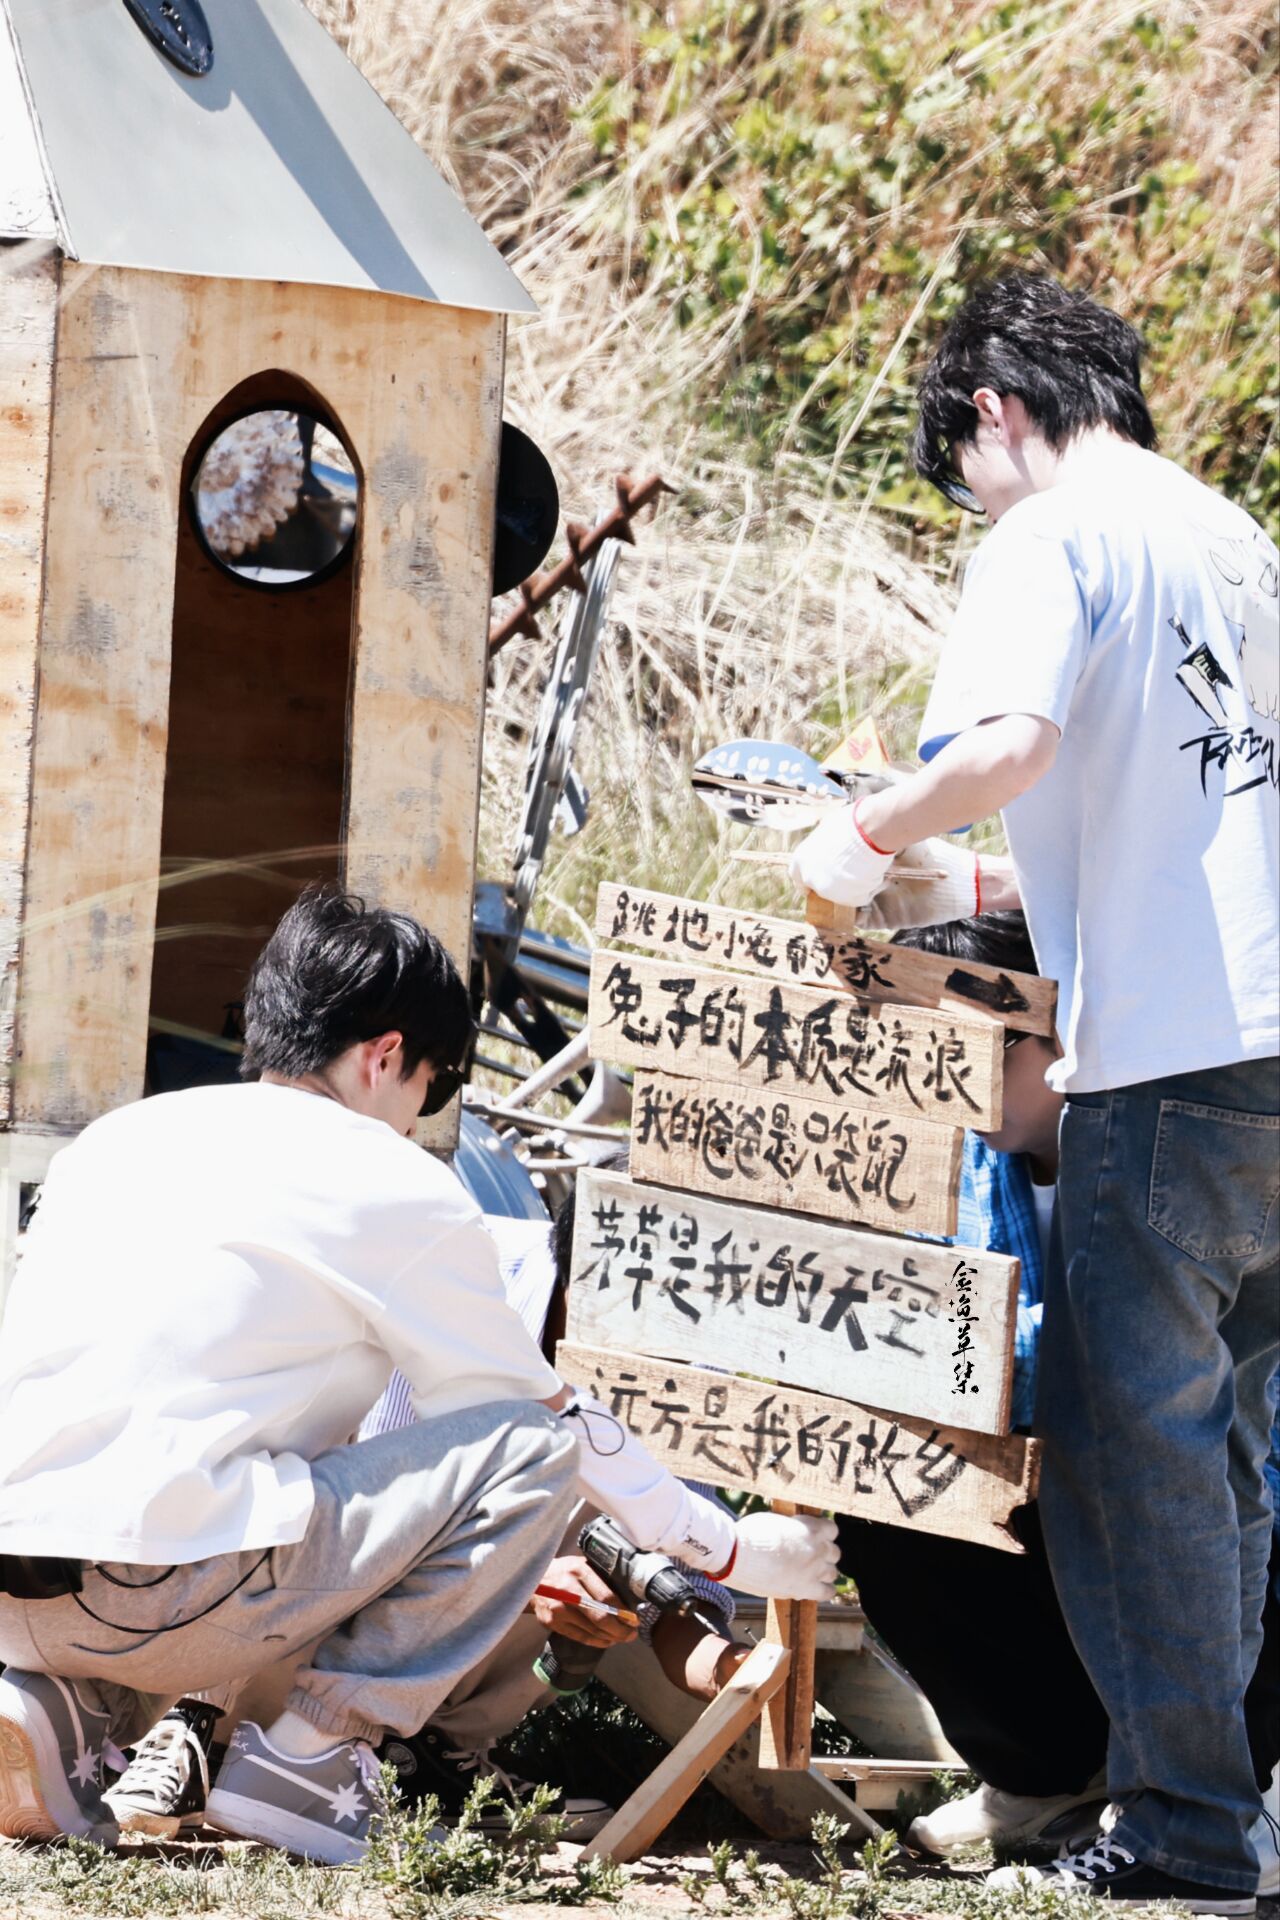 跳地小兔的家
兔子的本质是流浪
我的爸爸是只袋鼠
茅草是我的天空
远方是我的故乡
金鱼草集